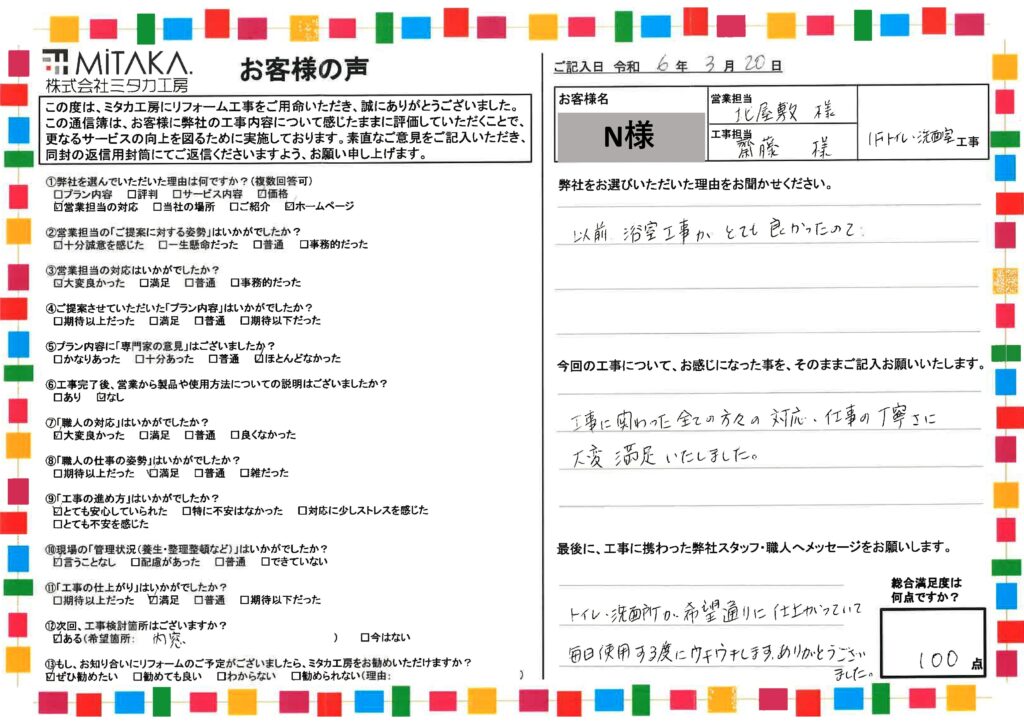 MiTAKA.
株式会社ミタカ工房
お客様の声
この度は、ミタカ工房にリフォーム工事をご用命いただき、誠にありがとうございました。
この通信簿は、お客様に弊社の工事内容について感じたままに評価していただくことで、
更なるサービスの向上を図るために実施しております。素直なご意見をご記入いただき、
同封の返信用封筒にてご返信くださいますよう、お願い申し上げます。
①弊社を選んでいただいた理由は何ですか?(複数回答可)
□プラン内容 □評判 □サービス内容 ☑価格
☑営業担当の対応 □当社の場所 □ご紹介 ☑ホームページ
②営業担当の「ご提案に対する姿勢」はいかがでしたか?
☑十分誠意を感じた □一生懸命だった □普通 □事務的だった
③営業担当の対応はいかがでしたか?
☑大変良かった □満足 □普通 □事務的だった
④ご提案させていただいた「プラン内容」はいかがでしたか?
□期待以上だった □満足 □普通 □期待以下だった
⑤プラン内容に「専門家の意見」はございましたか?
□かなりあった □十分あった □普通 ☑ほとんどなかった
⑥工事完了後、営業から製品や使用方法についての説明はございましたか?
□あり ☑なし
⑦「職人の対応」はいかがでしたか?
☑大変良かった □満足 □普通 □良くなかった
⑧「職人の仕事の姿勢」はいかがでしたか?
□期待以上だった ☑満足 □普通 □雑だった
⑨「工事の進め方」はいかがでしたか?
☑とても安心していられた □特に不安はなかった □対応に少しストレスを感じた
□とても不安を感じた
⑩現場の「管理状況(養生・整理整頓など)」はいかがでしたか?
☑言うことなし □配慮があった □普通 □できていない
⑪「工事の仕上がり」はいかがでしたか?
□期待以上だった ☑満足 □普通 □期待以下だった
⑫次回、工事検討箇所はございますか?
☑ある(希望箇所: 内窓、 ) □今はない
⑬もし、お知り合いにリフォームのご予定がございましたら、ミタカ工房をお勧めいただけますか?
☑ぜひ勧めたい □勧めても良い □わからない □勧められない(理由: )
ご記入日 令和 6 年 3 月 20 日
お客様名
N様
営業担当
北屋敷 様
工事担当
齋藤 様
1Fトイレ・洗面室工事
弊社をお選びいただいた理由をお聞かせください。
以前、浴室工事が、とても良かったので。
今回の工事について、お感じになった事を、そのままご記入お願いいたします。
工事に関わった全ての方々の対応、仕事の丁寧さに
大変満足いたしました。
最後に、工事に携わった弊社スタッフ・職人へメッセージをお願いします。
トイレ・洗面所が、希望通りに仕上がっていて
毎日使用する度にウキウキします。ありがとうござい
ました。
総合満足度は
何点ですか?
100 点